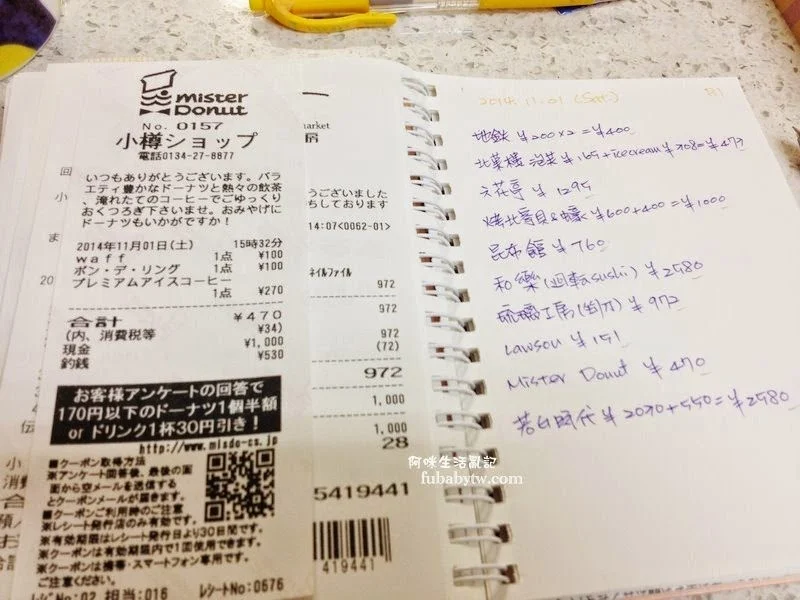 mister
Donut
No. 0157
小樽ショップ
電話0134-27-8877
いつもありがとうございます。バラ
エティ豊かなドーナツと熱々の飲茶
、淹れたてのコーヒーでごゆっくり
おくつろぎ下さいませ。おみやげに
ドーナツもいかがですか!
2014年11月01日(土) 15時32分
waff 1点 ¥100
ポン・デ・リング 1点 ¥100
プレミアムアイスコーヒー
1点 ¥270
合計 ¥470
(内、消費税等 ¥34)
現金 ¥1,000
釣銭 ¥530
お客様アンケートの回答で
170円以下のドーナツ1個半額
or ドリンク1杯30円引き!
http://www.misdo-cs.jp
■クーポン取得方法
※アンケート回答後、最後の画
面から空メールを送信する
とクーポンメールが届きます。
■クーポンご利用時のご注意
※レシート発行店のみ有効です。
※有効期限はレシート発行日より30日間です。
※クーポンは有効期限内で1回使用できます。
※クーポンは携帯・スマートフォン専用です。
ご注意ください。
レジNo:02 担当:016 レシートNo:0676
market
ございました
ちしております
14:07<0062-01>
ネイルファイル
972
972
972
(72)
972
1,000
1,000
28
5419441
419441
2014.11.01 (Sat.)
地鉄 ¥200×2=¥400
北菓樓 泡菜 ¥165+icecream ¥308=¥473
六花亭 ¥1295
烤北寄貝&蠔 ¥600+400=¥1000
昆布館 ¥760
和樂(迴転sushi) ¥2580
琉璃工房(銼刀) ¥972
Lawson ¥151
Mister Donut ¥470
¥2030+550=¥2580
阿咪生活亂記
fubabytw.com